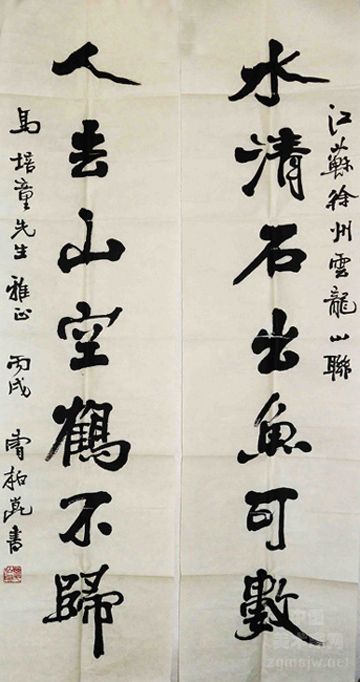 江蘇徐州雲龍山聯
水清石出魚可數
人去山空鶴不歸
馬培童先生雅正 丙戌 曹柏崑書
zgmsjw.net